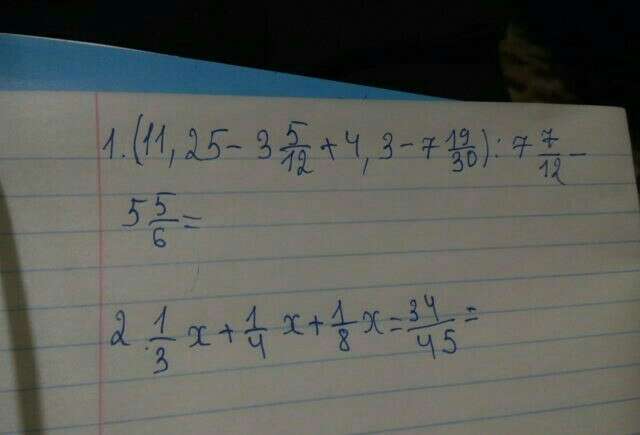 1. (11,25 - 3 5/12 + 4,3 - 7 19/30) : 7 7/12 -
5 5/6 =
2 1/3 x + 1/4 x + 1/8 x = 34/45 =